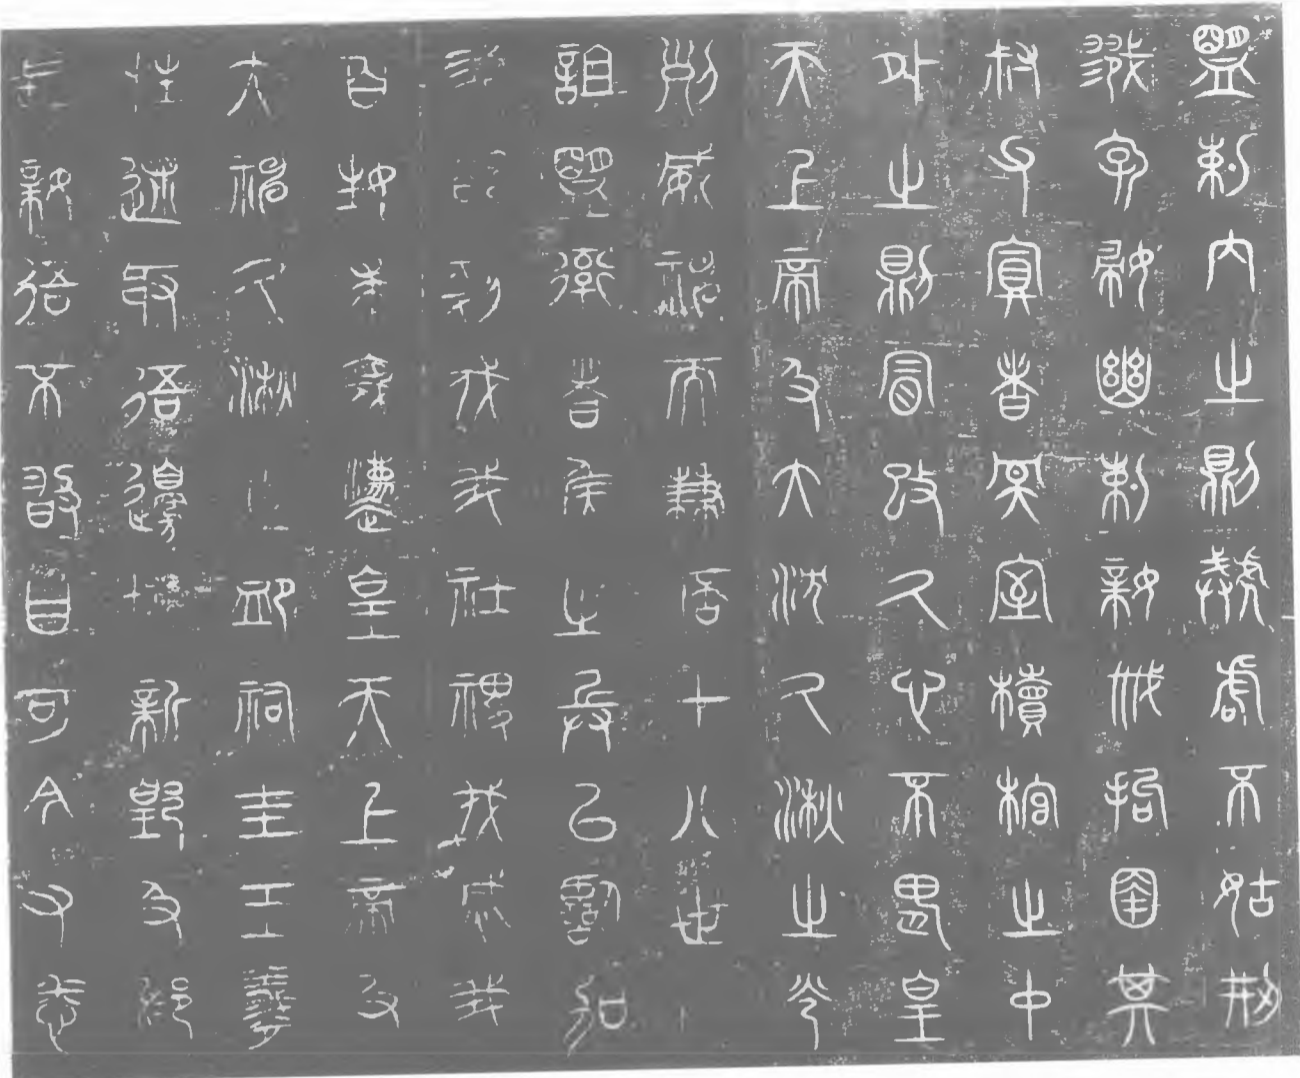 盟剌内之則虣虐不姑刑
戮孕婦幽剌親戚拘圉其
叔父寘者冥室櫝棺之中
外之則冒改久心不畏皇
天上帝及大沈久湫之光
列威神而兼倍十八世
詛盟率者侯之兵以臨加
剗伐我社稷伐滅我
百姓求蔑灋皇天上帝及
大神久湫之卹祠圭玉羲
牲逑取吾邊城新郢及
長親吾不敢曰可今又悉